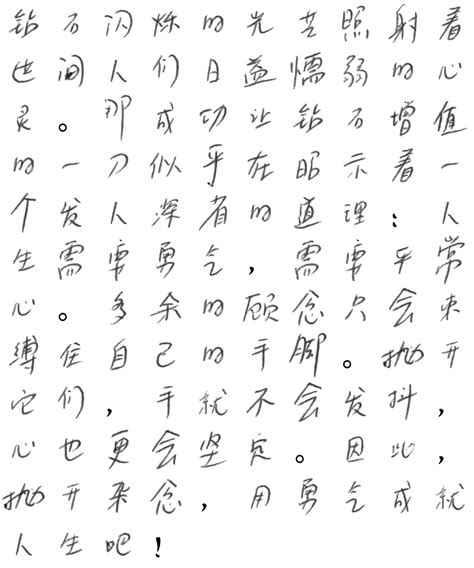 钻石闪烁的光芒照射着
世间人们日益懦弱的心
灵。那成功让钻石增值
的一刀似乎在昭示着一
个发人深省的道理：人
生需要勇气，需要平常
心。多余的顾念只会束
缚住自己的手脚。抛开
它们，手就不会发抖，
心也更会坚定。因此，
抛开杂念，用勇气成就
人生吧！